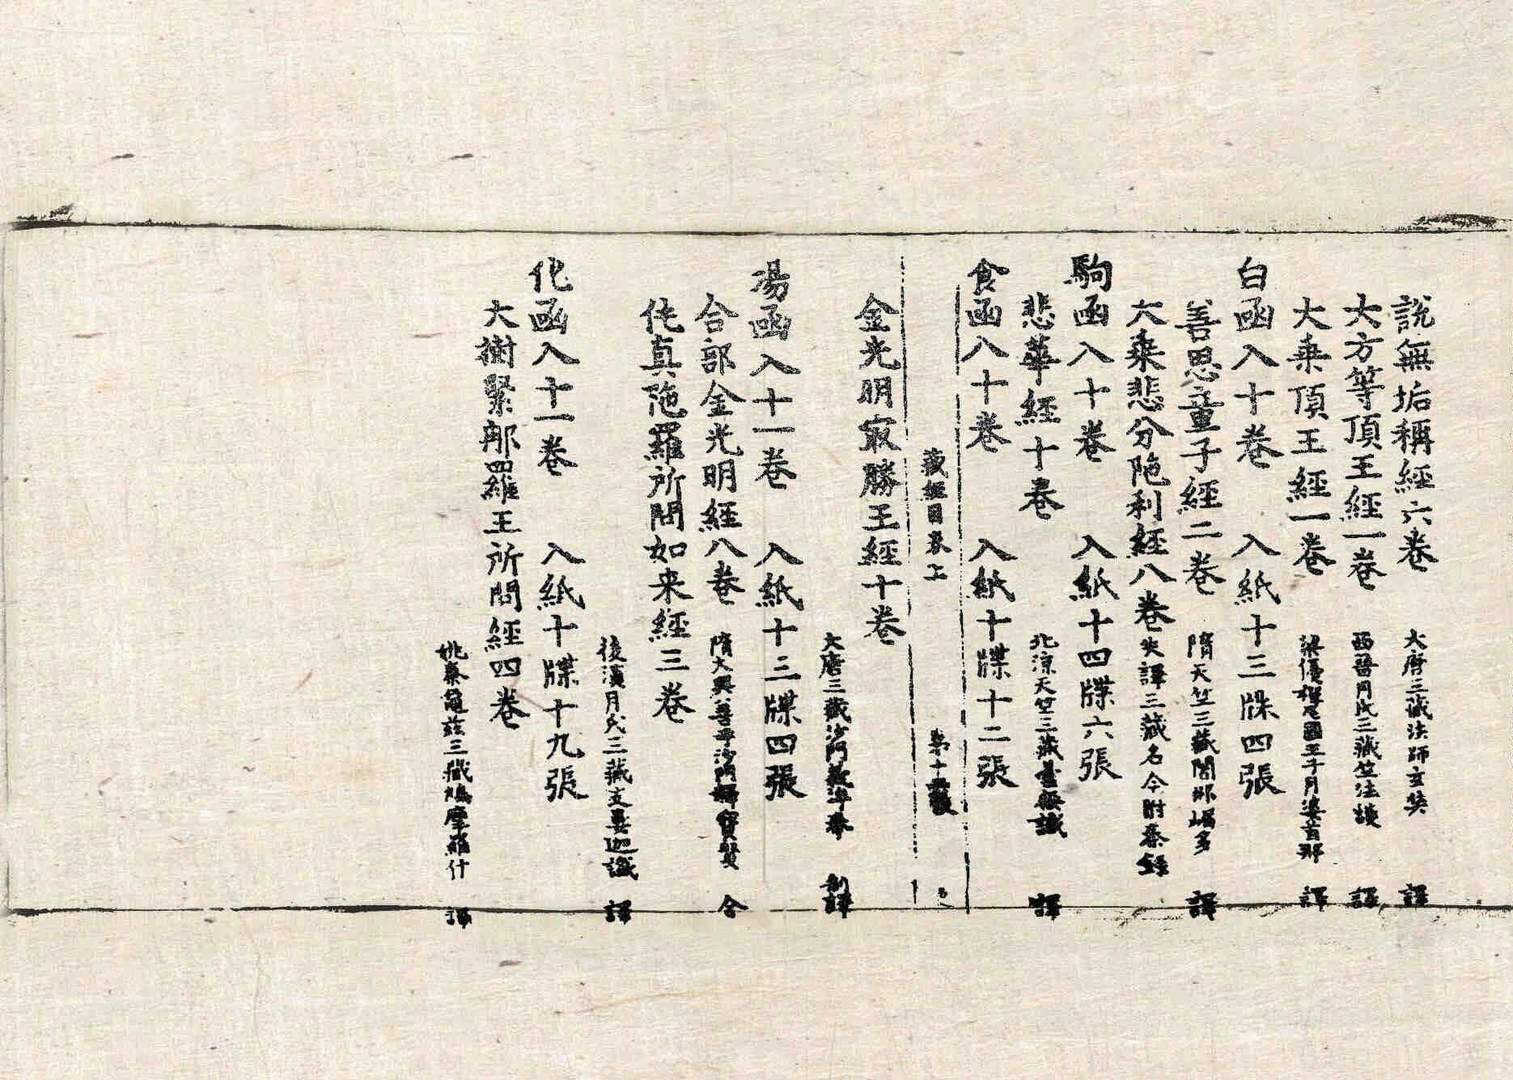 說無垢稱經六卷 大唐三藏法師玄奘 譯
大方等頂王經一卷 西晉月氏三藏竺法護 譯
大乗頂王經一卷 梁優禪尼國王子月婆首那 譯
白函入十卷 入紙十三牒四張
善思童子經二卷 隋天竺三藏闍那崛多 譯
大乗悲分陁利經八卷 失譯三藏名今附秦錄
駒函入十卷 入紙十四牒六張
悲華經十卷 北涼天竺三藏曇無讖 譯
食函入十卷 入紙十牒十二張
藏經目录上
金光明㝡勝王經十卷 大唐三藏沙門義淨奉 制譯
湯函入十一卷 入紙十三牒四張
合部金光明經八卷 隋大興善寺沙門釋寶貴 合
伅真陁羅所問如来經三卷 後漢月氏三藏支婁迦讖 譯
化函入十一卷 入紙十牒十九張
大樹緊那羅王所問經四卷 姚秦龜兹三藏鳩摩羅什 譯